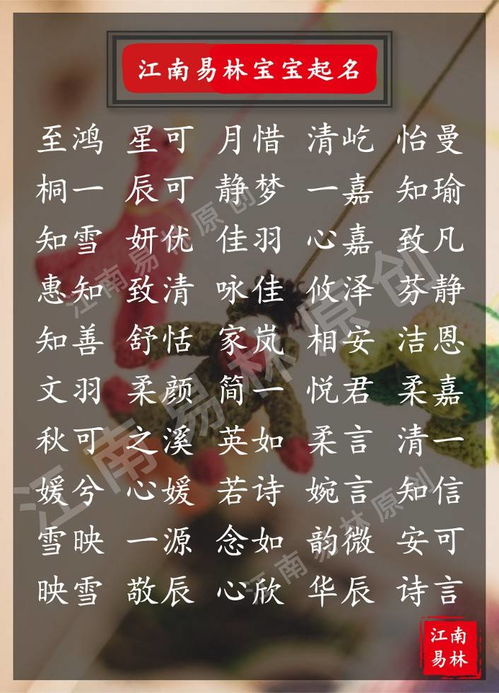 江南易林宝宝起名
至鸿 星可 月惜 清屹 怡曼
桐一 辰可 静梦 一嘉 知瑜
知雪 妍优 佳羽 心嘉 致凡
惠知 致清 咏佳 攸泽 芬静
知善 舒恬 家岚 相安 洁恩
文羽 柔颜 简一 悦君 柔嘉
秋可 之溪 英如 柔言 清一
媛兮 心媛 若诗 婉言 知信
雪映 一源 念如 韵微 安可
映雪 敬辰 心欣 华辰 诗言
江南易林原创
江南易林原创
江南易林原创
江南
易林